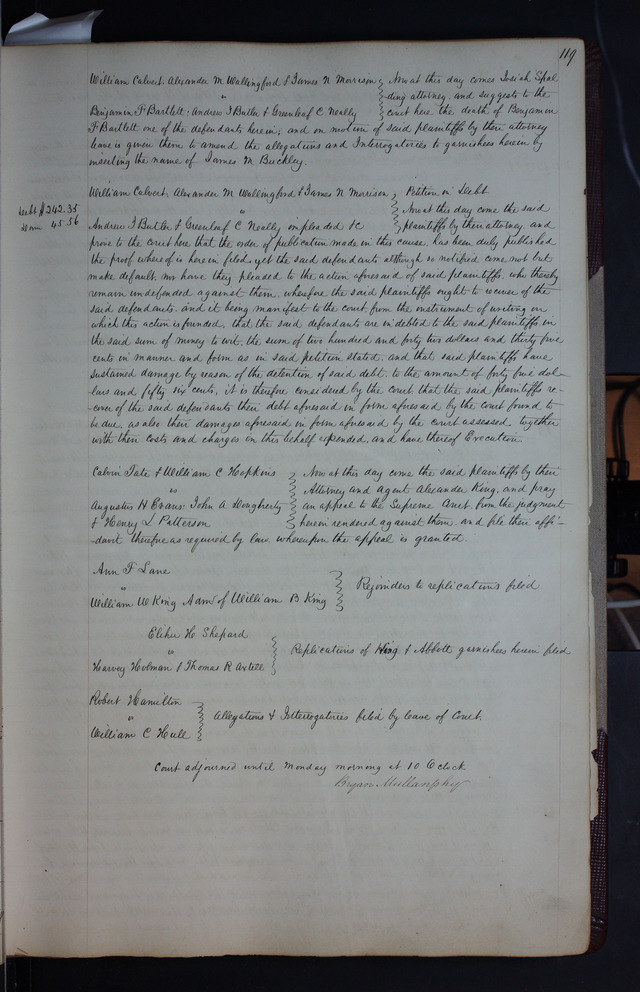 119
William Calvert, Alexander M Wallingford & James N Morrison
vs
Benjamin F Bartlett, Andrew J Butler & Greenleaf C Neally
Now at this day comes Josiah Spal
ding attorney, and suggests to the
court here the death of Benjamin
F Bartlett one of the defendants herein, and on motion of said plaintiffs by their attorney
leave is given them to amend the allegations and Interrogatories to garnishees herein by
inserting the name of James M Buckley.
William Calvert, Alexander M Wallingford & James N Morrison
vs
Andrew J Butler & Greenleaf C Neally impleaded &c
Petition in Debt
Debt $242.35
Dam 45.56
Now at this day come the said
plaintiffs by their attorney and
prove to the court here that the order of publication made in this cause, has been duly published
the proof whereof is herein filed, yet the said defendants although so notified come not but
make default, nor have they pleaded to the action aforesaid of said plaintiffs, who thereby
remain undefended against them, wherefore the said plaintiffs ought to recover of the
said defendants, and it being manifest to the court from the instrument of writing on
which this action is founded, that the said defendants are indebted to the said plaintiffs in
the said sum of money to wit, the sum of two hundred and forty two dollars and thirty five
cents in manner and form as in said petition stated, and that said plaintiffs have
sustained damage by reason of the detention of said debt, to the amount of forty five dol-
lars and fifty six cents, it is therefore considered by the court that the said plaintiffs re-
cover of the said defendants their debt aforesaid in form aforesaid by the court found to
be due, as also their damages aforesaid in form aforesaid by the court assessed, together
with their costs and charges in this behalf expended, and have thereof Execution.
Calvin Tate & William C Hopkins
vs
Augustus H Evans, John A Dougherty
& Henry L Patterson
Now at this day come the said plaintiffs by their
Attorney and agent Alexander King, and pray
an appeal to the Supreme Court, from the judgment
herein rendered against them, and file their affi-
davit therefor as required by law whereupon the appeal is granted.
Ann F Lane
vs
William W King Admr of William B King
Rejoinders to replications filed
Elihu H Shepard
vs
Harvey Holman & Thomas R Axtell
Replications of King & Abbott, garnishees herein filed
Robert Hamilton
vs
William C Hull
Allegations & Interrogatories filed by leave of Court.
Court adjourned until Monday morning at 10 O'clock
Bryan Mullanphy